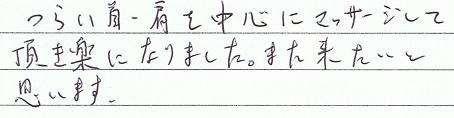 つらい首・肩を中心にマッサージして
頂き楽になりました。また来たいと
思います。